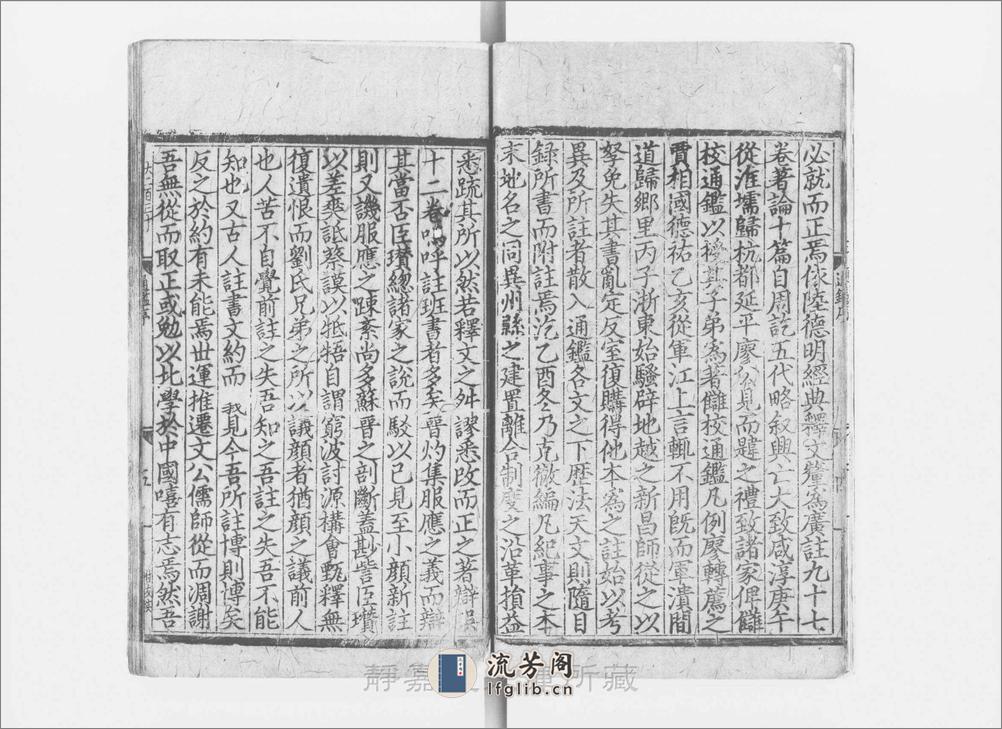 必就而正焉依陸德明經典釋文釐爲廣註九十七
卷著論十篇自周訖五代略叙興亡大致咸淳庚午
從淮壖歸杭都延平廖公見而韙之禮致諸家俾讎
校通鑑以授其子弟爲著讎校通鑑凡例廖轉薦之
賈相國德祐乙亥從軍江上言輒不用旣而軍潰間
道歸鄉里丙子浙東始騷辟地越之新昌師從之以
孥免失其書亂定反室復購得他本爲之註始以考
異及所註者散入通鑑各文之下歷法天文則隨目
録所書而附註焉汔乙酉冬乃克徹編凡紀事之本
末地名之同異州縣之建置離合制度之沿革損益
悉疏其所以然若釋文之舛謬悉改而正之著辯誤
十二卷嗚呼註班書者多矣晉灼集服應之義而辯
其當否臣瓚緫諸家之說而駮以已見至小顔新註
則又譏服應之踈紊尚多蘇晉之剖斷蓋尠訾臣瓚
以差爽詆蔡謨以牴牾自謂窮波討源構會甄釋無
復遺恨而劉氏兄弟之所以議顔者猶顔之議前人
也人苦不自覺前註之失吾知之吾註之失吾不能
知也又古人註書文約而 見今吾所註博則博矣
反之於約有未能焉世運推遷文公儒師從而凋謝
吾無從而取正或勉以北學於中國嘻有志焉然吾
通鑑序
五
静嘉 所藏
流芳阁
lfglib.cn